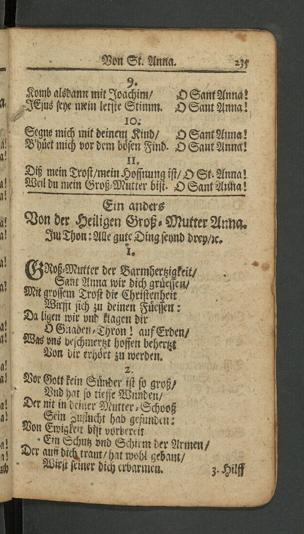 Von St. Anna. 235
9.
Komb alsdann mit Joachim/ O Sant Anna!
JEsus seye mein letste Stimm. O Sant Anna!
10.
Segne mich mit deinem Kind/ O Sant Anna!
B'hüet mich vor dem bösen Find. O Sant Anna!
11.
Diß mein Trost/mein Hoffnung ist/ O St. Anna!
Weil du mein Groß-Mutter bist. O Sant Anna!
Ein anders
Von der Heiligen Groß-Mutter Anna.
Im Thon: Alle gute Ding seynd drey/ꝛc.
1.
GRoß-Mutter der Barmhertzigkeit/
Sant Anna wir dich grüessen/
Mit grossem Trost die Christenheit
Wirfft sich zu deinen Füessen:
Da ligen wir und klagen dir
O Gnaden-Thron! auf Erden/
Was uns beschmertzt hoffen behertzt
Von dir erhört zu werden.
2.
Vor Gott kein Sünder ist so groß/
Und hat so tieffe Wunden/
Der nit in deiner Mutter-Schooß
Sein Zuflucht hab gefunden:
Von Ewigkeit bist vorbereit
Ein Schutz und Schirm der Armen/
Der auff dich traut/ hat wohl gebaut/
Wirst seiner dich erbarmen.
3. Hilff